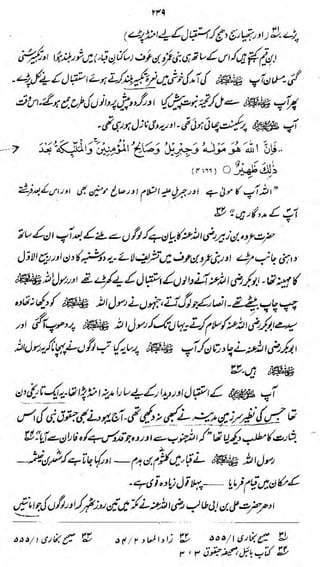 ۲۳۹
پڑے ۳۱ (اور ہتھیار سج دھج کر استقبال کے لیے امنڈ پڑے)
ابن قیم کہتے ہیں کہ اس کے ساتھ ہی بنی عمرو بن عوف (ساکنانِ قبا) میں شور بلند ہوا اور تکبیر سنی
گئی۔ مسلمان آپ ﷺ کی آمد کی خوشی میں نعرۂ تکبیر بلند کرتے ہوئے استقبال کے لیے نکل پڑے۔
پھر آپ ﷺ سے مل کر تحیۂ نبوت پیش کیا اور گرد و پیش پروانوں کی طرح جمع ہو گئے۔ اس وقت
آپ ﷺ پر سکینت چھائی ہوئی تھی۔ اور یہ وحی نازل ہو رہی تھی۔
..فَإِنَّ اللّٰهَ هُوَ مَوْلٰىهُ وَجِبْرِيْلُ وَصَالِحُ الْمُؤْمِنِيْنَ ۚ وَالْمَلٰٓئِكَةُ بَعْدَ
ذٰلِكَ ظَهِيْرٌ ○ (۴:۶۶)
"اللہ آپ کا مولیٰ ہے اور جبریل علیہ السلام اور صالح مومنین بھی اور اس کے بعد فرشتے
آپ کے مددگار ہیں" ۳۲
حضرت عروہ بن زبیر رضی اللہ عنہ کا بیان ہے کہ لوگوں سے ملنے کے بعد آپ ان کے ساتھ
داہنی جانب مڑے اور بنی عمرو بن عوف میں تشریف لائے۔ یہ دوشنبہ کا دن اور ربیع الاول
کا مہینہ تھا۔ ابوبکر رضی اللہ عنہ آنے والوں کے استقبال کے لیے کھڑے تھے اور رسول اللہ ﷺ
چپ چاپ بیٹھے تھے۔ انصار کے جو لوگ آتے، جنہوں نے رسول اللہ ﷺ کو دیکھا نہ تھا وہ
سیدھے ابوبکر رضی اللہ عنہ کو سلام کرتے یہاں تک کہ رسول اللہ ﷺ پر دھوپ آ گئی اور
ابوبکر رضی اللہ عنہ نے چادر تان کر آپ ﷺ پر سایہ کیا تب لوگوں نے پہچانا کہ یہ رسول اللہ
ﷺ ہیں۔
آپ ﷺ کے استقبال اور دیدار کے لیے سارا مدینہ امنڈ پڑا تھا۔ یہ ایک تاریخی دن
تھا جس کی نظیر سرزمینِ مدینہ نے کبھی نہ دیکھی تھی۔ آج یہود نے بھی حبقوق نبی کی اس
بشارت کا مطلب دیکھ لیا تھا "کہ اللہ جنوب سے اور وہ جو قدوس ہے کوہ فاران سے آیا"
رسول اللہ ﷺ نے قبا میں کلثوم بن ہدم اور کہا جاتا ہے کہ سعد بن خیثمہ
کے مکان میں قیام فرمایا پہلا قول زیادہ قوی ہے۔
ادھر حضرت علی بن ابی طالب رضی اللہ عنہ نے مکہ میں تین روز ٹھہر کر اور لوگوں کی جو امانتیں
صحیح بخاری ۱/۵۵۵ زاد المعاد ۲/۵۴ صحیح بخاری ۱/۵۵۵
کتاب بائبل، صحیفہ حبقوق ۳:۳